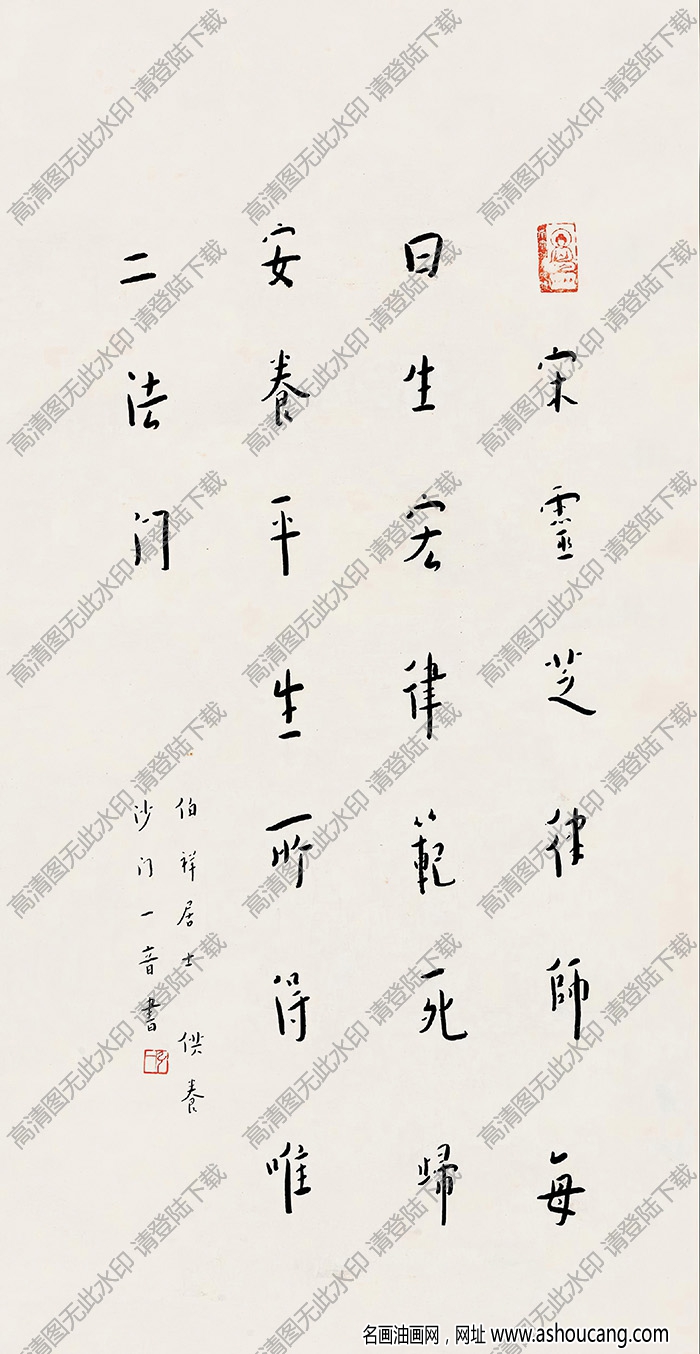 宋靈芝律師每
曰生宏律範死歸
安養平生所得唯
二法门
伯祥居士 供養
沙门一音書
高清图无此水印 请登陆下载
名画油画网，网址 www.ashoucang.com